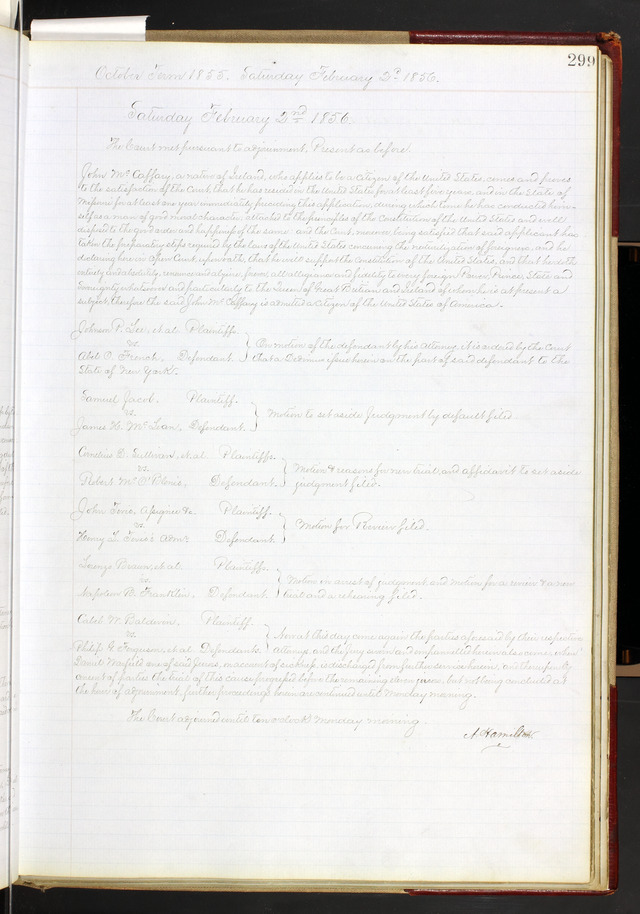 299
October Term 1855. Saturday February 2d 1856.
Saturday February 2nd 1856
The Court met pursuant to adjournment. Present as before.
John McCaffery, a native of Ireland, who applies to be a citizen of the United States, comes and proves
to the satisfaction of the Court, that he has resided in the United States for at least five years, and in the State of
Missouri for at least one year immediately preceding this application, during which time he has conducted him-
self as a man of good moral character, attached to the principles of the Constitution of the United States and well
disposed to the good order and happiness of the same: and the Court, moreover, being satisfied that said applicant has
taken the preparatory steps required by the laws of the United States concerning the naturalization of foreigners, and he
declaring here in open Court, upon oath, that he will support the constitution of the United States, and that he doth
entirely and absolutely renounce and abjure, forever, all allegiance and fidelity to every foreign Power, Prince, State and
Sovereignty whatsoever and particularly to the Queen of Great Britain and Ireland of whom he is at present a
subject, therefore the said John McCaffery is admitted a citizen of the United States of America.
Johnson P. Lee, et al Plaintiffs.
vs.
On motion of the defendant by his Attorney, it is ordered by the Court
Abel O. French. Defendant. that a Dedimus issue herein on the part of said defendant to the
State of New York.
Samuel Jacob. Plaintiff.
vs. Motion to set aside Judgment by default filed
James H. McLean. Defendant.
Cornelius D. Sullivan, et al. Plaintiffs.
vs. Motion & reasons for new trial, and affidavit to set aside
Robert M. Defendant. judgment filed.
John Assignee &c. Plaintiff.
vs. Motion for Review filed.
Henry L. Admr. Defendant.
Lorenzo Brown, et al. Plaintiffs.
vs. Motion in arrest of judgment, and motion for a review & a new
Napoleon B. Franklin. Defendant. trial and a rehearing filed.
Caleb W. Baldwin. Plaintiff.
vs. Now at this day come again the parties aforesaid by their respective
Philip G. Ferguson, et al Defendants. attorneys, and the jury sworn and empanelled herein also comes, when
Daniel one of said Jurors, on account of sickness, is discharged from further service herein, and thereupon by
consent of parties the trial of this cause progressed before the remaining eleven jurors, but not being concluded at
the hour of adjournment, further proceedings herein are continued until Monday morning.
The Court adjourned until ten o'clock Monday morning
A. Hamilton